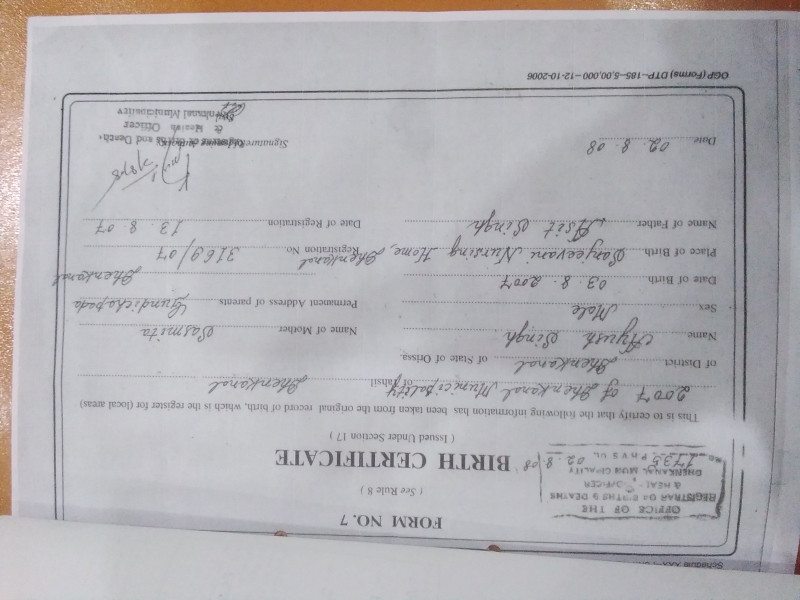 FORM NO. 7
( See Rule 8 )
OFFICE OF THE
REGISTRAR OF BIRTHS & DEATHS
& HEAL OFFICER
DHENKANAL MUNICIPALITY
1735 02.8.08
BIRTH CERTIFICATE
( Issued Under Section 17 )
This is to certify that the following information has been taken from the original record of birth, which is the register for (local areas)
2007 of Dhenkanal Municipality of Tahsil Dhenkanal
of District Dhenkanal of State of Orissa.
Name Ayush Singh Name of Mother Sasmita
Sex Male Permanent Address of parents Gundichapada
Date of Birth 03.8.2007 Dhenkanal
Place of Birth Sanjeevani Nursing Home, Dhenkanal Registration No 3169/07
Name of Father Asit Singh Date of Registration 13.8.07
Date 02.8.08 Signature of issuing
and Death,
& Health Officer
Dhenkanal Municipality
OGP (Forms) DTP--185--5,00,000--12-10-2006